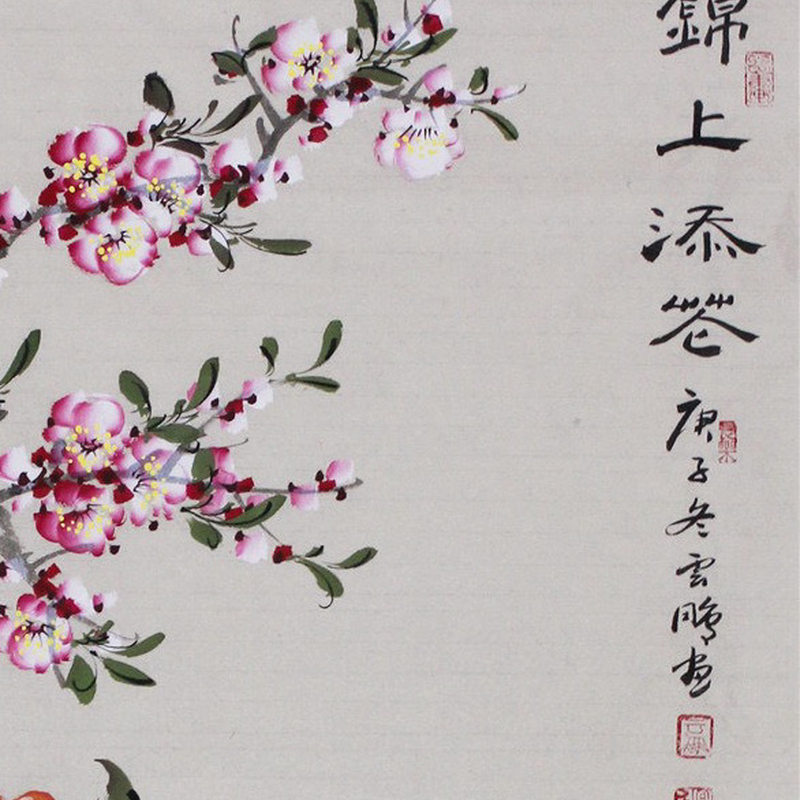 錦上添花
庚子冬雲鵬畫